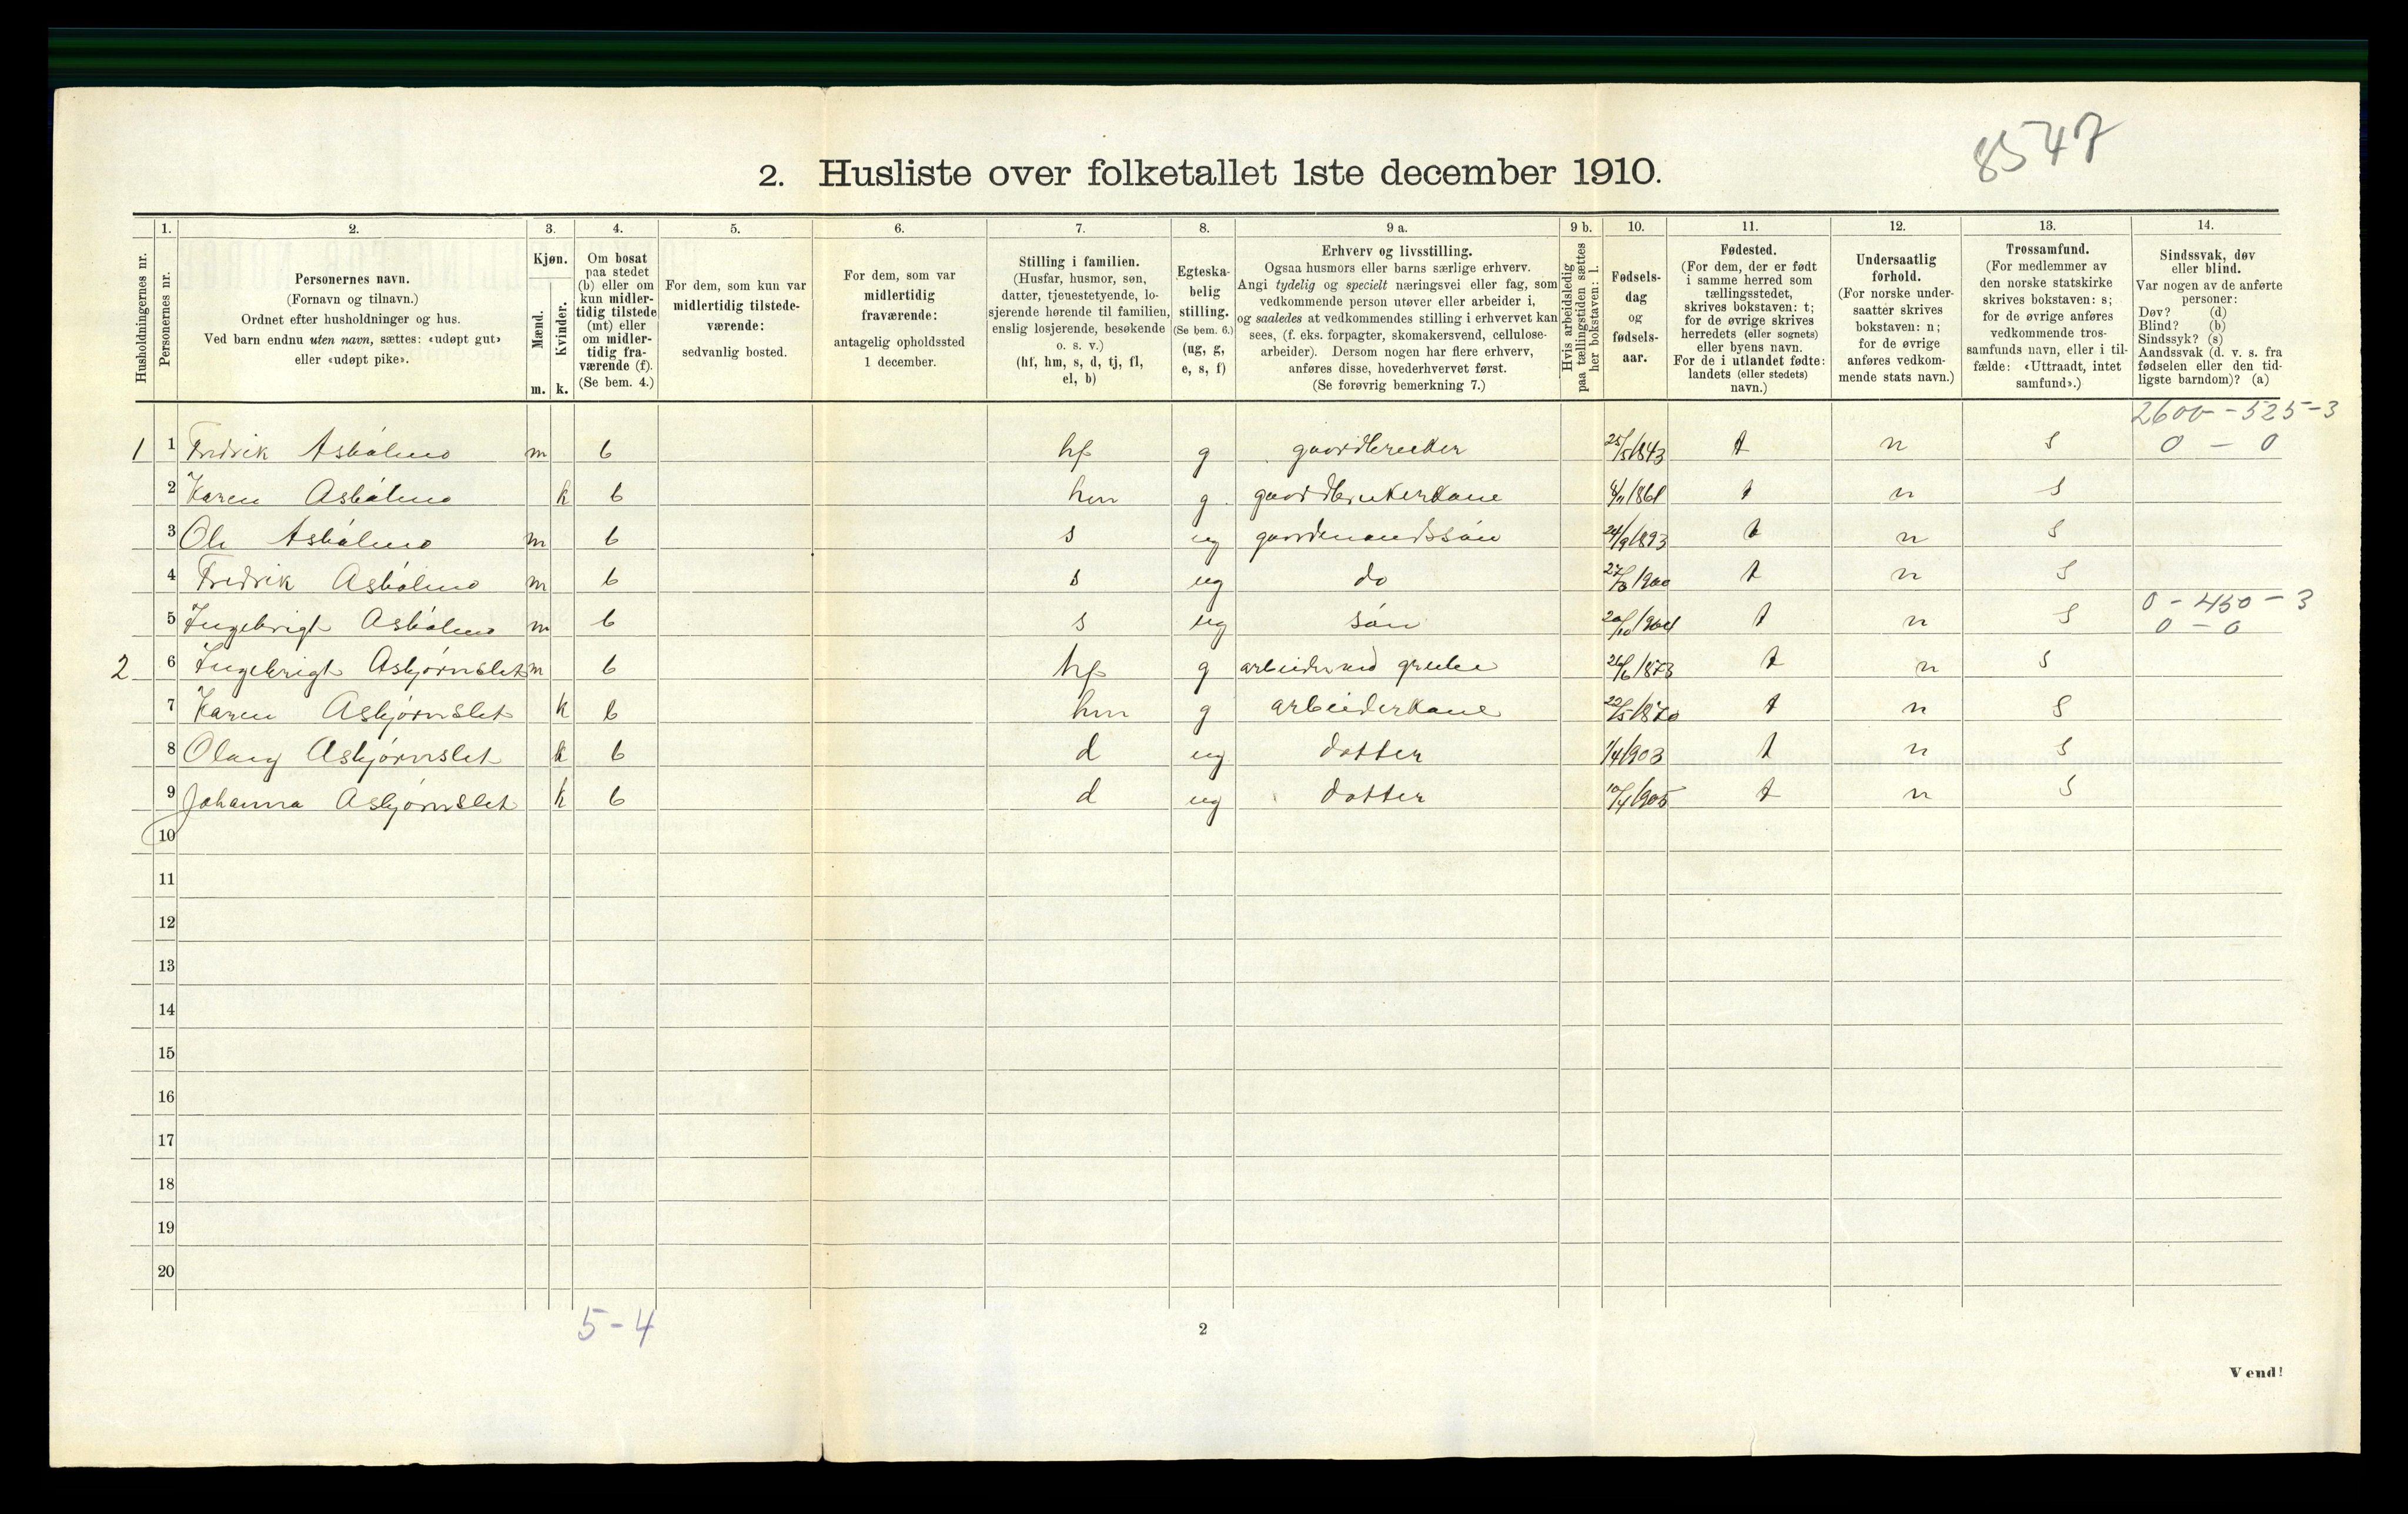 8547
2. Husliste over folketallet 1ste december 1910.
Husholdningernes nr.
1.
Personernes nr.
2.
Personernes navn.
(Fornavn og tilnavn.)
Ordnet efter husholdninger og hus.
Ved barn endnu uten navn, sættes: «udøpt gut»
eller «udøpt pike».
3.
Kjøn.
Mænd.
m.
Kvinder.
k.
4.
Om bosat
paa stedet
(b) eller om
kun midler-
tidig tilstede
(mt) eller
om midler-
tidig fra-
værende (f).
(Se bem. 4.)
5.
For dem, som kun var
midlertidig tilstede-
værende:
sedvanlig bosted.
6.
For dem, som var
midlertidig
fraværende:
antagelig opholdssted
1 december.
7.
Stilling i familien.
(Husfar, husmor, søn,
datter, tjenestetyende, lo-
sjerende hørende til familien,
enslig losjerende, besøkende
o. s. v.)
(hf, hm, s, d, tj, fl,
el, b)
8.
Egteska-
belig
stilling.
(Se bem. 6.)
(ug, g,
e, s, f)
9 a.
Erhverv og livsstilling.
Ogsaa husmors eller barns særlige erhverv.
Angi tydelig og specielt næringsvei eller fag, som
vedkommende person utøver eller arbeider i,
og saaledes at vedkommendes stilling i erhvervet kan
sees, (f. eks. forpagter, skomakersvend, cellulose-
arbeider). Dersom nogen har flere erhverv,
anføres disse, hovederhvervet først.
(Se forøvrig bemerkning 7.)
9 b.
Hvis arbeidsledig
paa tællingstiden sættes
her bokstaven: l.
10.
Fødsels-
dag
og
fødsels-
aar.
11.
Fødested.
(For dem, der er født
i samme herred som
tællingsstedet,
skrives bokstaven: t;
for de øvrige skrives
herredets (eller sognets)
eller byens navn.
For de i utlandet fødte:
landets (eller stedets)
navn.)
12.
Undersaatlig
forhold.
(For norske under-
saatter skrives
bokstaven: n;
for de øvrige
anføres vedkom-
mende stats navn.)
13.
Trossamfund.
(For medlemmer av
den norske statskirke
skrives bokstaven: s;
for de øvrige anføres
vedkommende tros-
samfunds navn, eller i til-
fælde: «Uttraadt, intet
samfund».)
14.
Sindssvak, døv
eller blind.
Var nogen av de anførte
personer:
Døv? (d)
Blind? (b)
Sindssyk? (s)
Aandssvak (d. v. s. fra
fødselen eller den tid-
ligste barndom)? (a)
2600 - 525 - 3
1 1 Fredrik Asbólmo m b hf g gaardbruker 25/5 1843 t n s 0 - 0
2 Karen Asbólmo k b hm g gaardbrukerkone t n s
3 Ole Asbólmo m b s ug gaardmandssón 24/9 1893 t n s
4 Fredrik Asbólmo m b s ug do t n s
0 - 450 - 3
5 Ingebrigt Asbólmo m b s ug són t n s 0 - 0
2 6 Ingebrigt Asbjørnslet m b hf g arbeider ved grube 26/6 1873 t n s
7 Karen Asbjørnslet k b hm g arbeiderkone 22/5 1870 t n s
8 Olaug Asbjørnslet k b d ug datter 1/4 1903 t n s
9 Johanna Asbjørnslet k b d ug datter 10/4 1905 t n s
10
11
12
13
14
15
16
17
18
19
20
5 - 4
2
Vend!